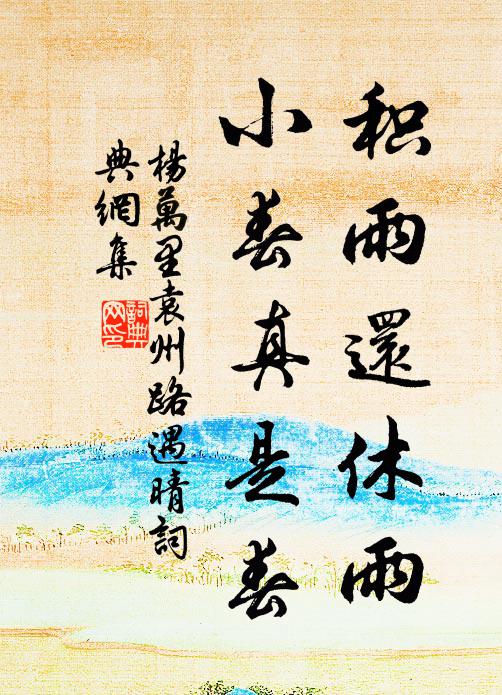 积雨還休雨
小春真是春
楊萬里袁州路遇晴詞
典網集
詞典
网印